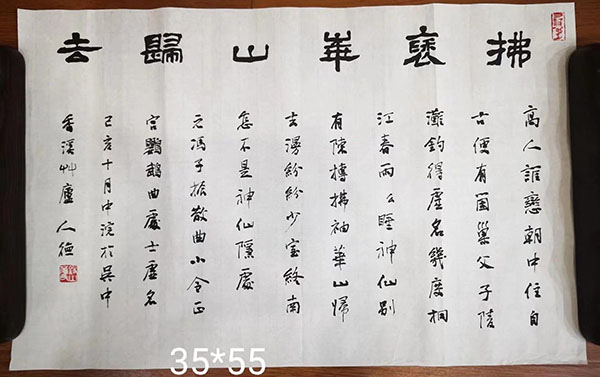 拂褎崋山歸去
高人誰戀朝中住自
古便有箇巢父子陵
灘釣得虛名幾度桐
江春雨么睡神仙別
有陳摶拂袖華山歸
去漫紛紛少室終南
怎不是神仙隱處
元馮子振散曲小令正
宮鸚鵡曲處士虛名
己亥十月中浣於吳中
香溪艸廬人德
35*55